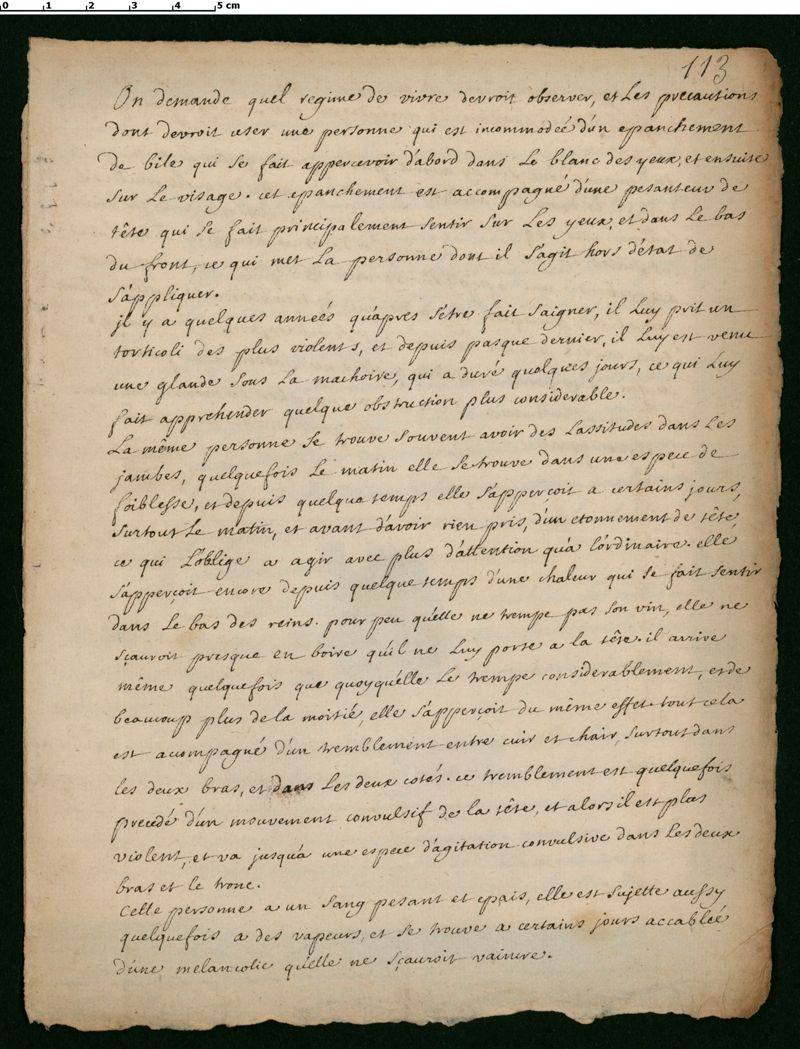 0 1 2 3 4 5 cm
113
On demande quel regime de vivre devroit observer, et Les precautions
dont devroit user une personne qui est incommodeé d'un epanchement
de bile qui se fait appercevoir d'abord dans Le blanc des yeux, et ensuite
sur Le visage. cet epanchement est accompagné d'une pesanteur de
tête qui se fait principalement sentir sur Les yeux, et dans Le bas
du front, ce qui met La personne dont il s'agit hors d'état de
s'appliquer.
il y a quelques anneés qu'apres s'être fait saigner, il Luy prit un
torticoli des plus violents, et depuis pasque dernier, il Luy est venu
une glande sous La machoire, qui a duré quelques jours, ce qui Luy
fait apprehender quelque obstruction plus considerable.
La même personne se trouve souvent avoir des Lassitudes dans Les
jambes, quelquefois Le matin elle se trouve dans une espece de
foiblesse, et depuis quelque temps elle s'apperçoit a certains jours,
surtout Le matin, et avant d'avoir rien pris, d'un etonnement de tête,
ce qui L'oblige a agir avec plus d'attention qu'a L'ordinaire. elle
s'apperçoit encore depuis quelque temps d'une chaleur qui se fait sentir
dans Le bas des reins. pour peu qu'elle ne trempe pas son vin, elle ne
sçauroit presque en boire qu'il ne Luy porte a la tête. il arrive
même quelquefois que quoyqu'elle Le trempe considerablement, et de
beaucoup plus de la moitié, elle s'apperçoit du même effet. tout cela
est acompagné d'un tremblement entre cuir et chair, surtout dans
les deux bras, et dans Les deux cotés. ce tremblement est quelquefois
precedé d'un mouvement convulsif de la tête, et alors il est plus
violent, et va jusqu'a une espece d'agitation convulsive dans Les deux
bras et le tronc.
Cette personne a un sang pesant et epais, elle est sujette aussy
quelquefois a des vapeurs, et se trouve a certains jours accableé
d'une melancolie qu'elle ne sçauroit vaincre.